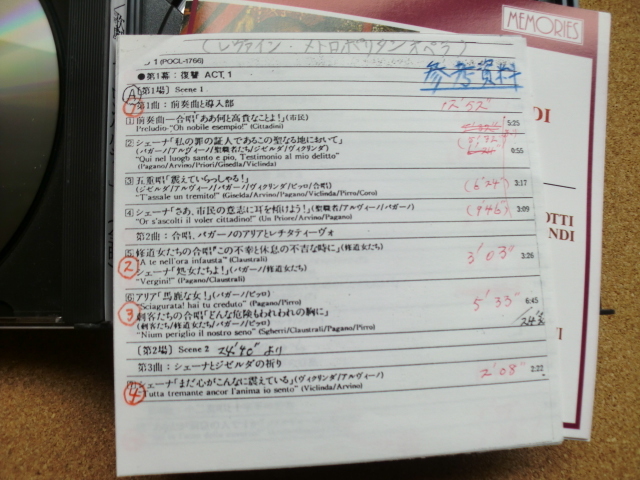 (レヴァイン・メトロポリタンオペラ)
1 (POCL-1766)
MEMORIES
参考資料
●第1幕：復讐 ACT. 1
Ⓐ [第1場] Scene 1
① 第1曲：前奏曲と導入部
[1] 前奏曲―合唱「ああ何と高貴なことよ!」(市民) 5:25
Preludio-"Oh nobile esempio!" (Cittadini)
[2] シェーナ「私の罪の証人であるこの聖なる地において」
(パガーノ/アルヴィーノ/聖職者たち/ジゼルダ/ヴィクリンダ) 0:55
"Qui nel luogh santo e pio, Testimonio al mio delitto"
(Pagano/Arvino/Priori/Giselda/Viclinda)
[3] 五重唱「震えていらっしゃる!」 (6'24") 3:17
(ジゼルダ/アルヴィーノ/パガーノ/ヴィクリンダ/ピッロ/合唱)
"T'assale un tremito!" (Giselda/Arvino/Pagano/Viclinda/Pirro/Coro)
[4] シェーナ「さあ、市民の意志に耳を傾けよう!」(聖職者/アルヴィーノ/パガーノ) (9'46") 3:09
"Or s'ascolti il voler cittadino!" (Un Priore/Arvino/Pagano)
第2曲：合唱、パガーノのアリアとレチタティーヴォ
[5] 修道女たちの合唱「この不幸と休息の不吉な時に」(修道女たち) 3'03" 3:26
② "A te nell'ora infausta" (Claustrali)
シェーナ「処女たちよ!」(パガーノ/修道女)
"Vergini!" (Pagano/Claustrali)
[6] アリア「馬鹿な女!」(パガーノ/ピッロ) 5'33" 6:45
"Sciagurata! hai tu creduto" (Pagano/Pirro)
③ 刺客たちの合唱「どんな危険もわれわれの胸に」
(刺客たち/修道女たち/パガーノ/ピッロ)
"Nium periglio il nostro seno" (Sgherri/Claustrali/Pagano/Pirro)
[第2場] Scene 2 24'40" より
第3曲：シェーナとジゼルダの祈り
[7] シェーナ「まだ心がこんなに震えている」(ヴィクリンダ/アルヴィーノ) 2'08" 2:22
④ "Tutta tremante ancor l'anima io sento" (Viclinda/Arvino)
DI
OTTI
NDI